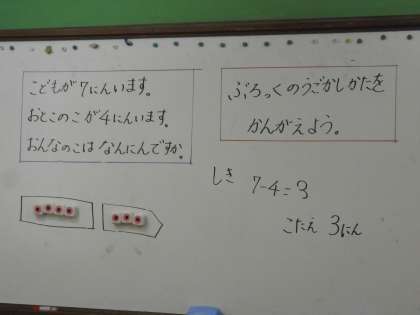 こどもが7にんいます。
おとこのこが4にんいます。
おんなのこはなんにんですか。
ぶろっくのうごかしかたを
かんがえよう。
しき 7-4=3
こたえ 3にん